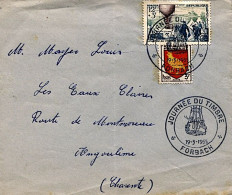 M. Mayes Louis
Les Eaux Claires
Route de Montmoreau
Angoulême
(Charente)
JOURNÉE DU TIMBRE
19-3-1955
FORBACH